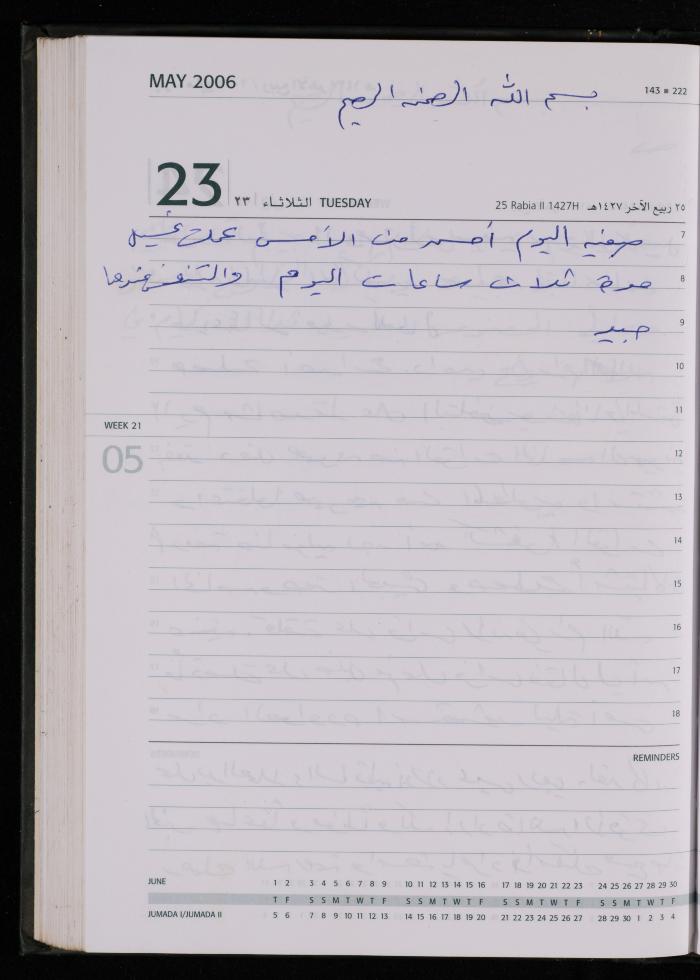 MAY 2006
143 ■ 222
بسم الله الرحمن الرحيم
23 ٢٣ الثلاثاء TUESDAY
25 Rabia II 1427H ٢٥ ربيع الآخر ١٤٢٧هـ
7
صفيه اليوم أحسن من الأمس عملت غسيل
8
مدة ثلاث ساعات اليوم والتنفس عندها
9
جيد
10
11
WEEK 21
05
12
13
14
15
16
17
18
REMINDERS
JUNE 1 2 3 4 5 6 7 8 9 10 11 12 13 14 15 16 17 18 19 20 21 22 23 24 25 26 27 28 29 30
T F S S M T W T F S S M T W T F S S M T W T F S S M T W T F
JUMADA I/JUMADA II 5 6 7 8 9 10 11 12 13 14 15 16 17 18 19 20 21 22 23 24 25 26 27 28 29 30 1 2 3 4